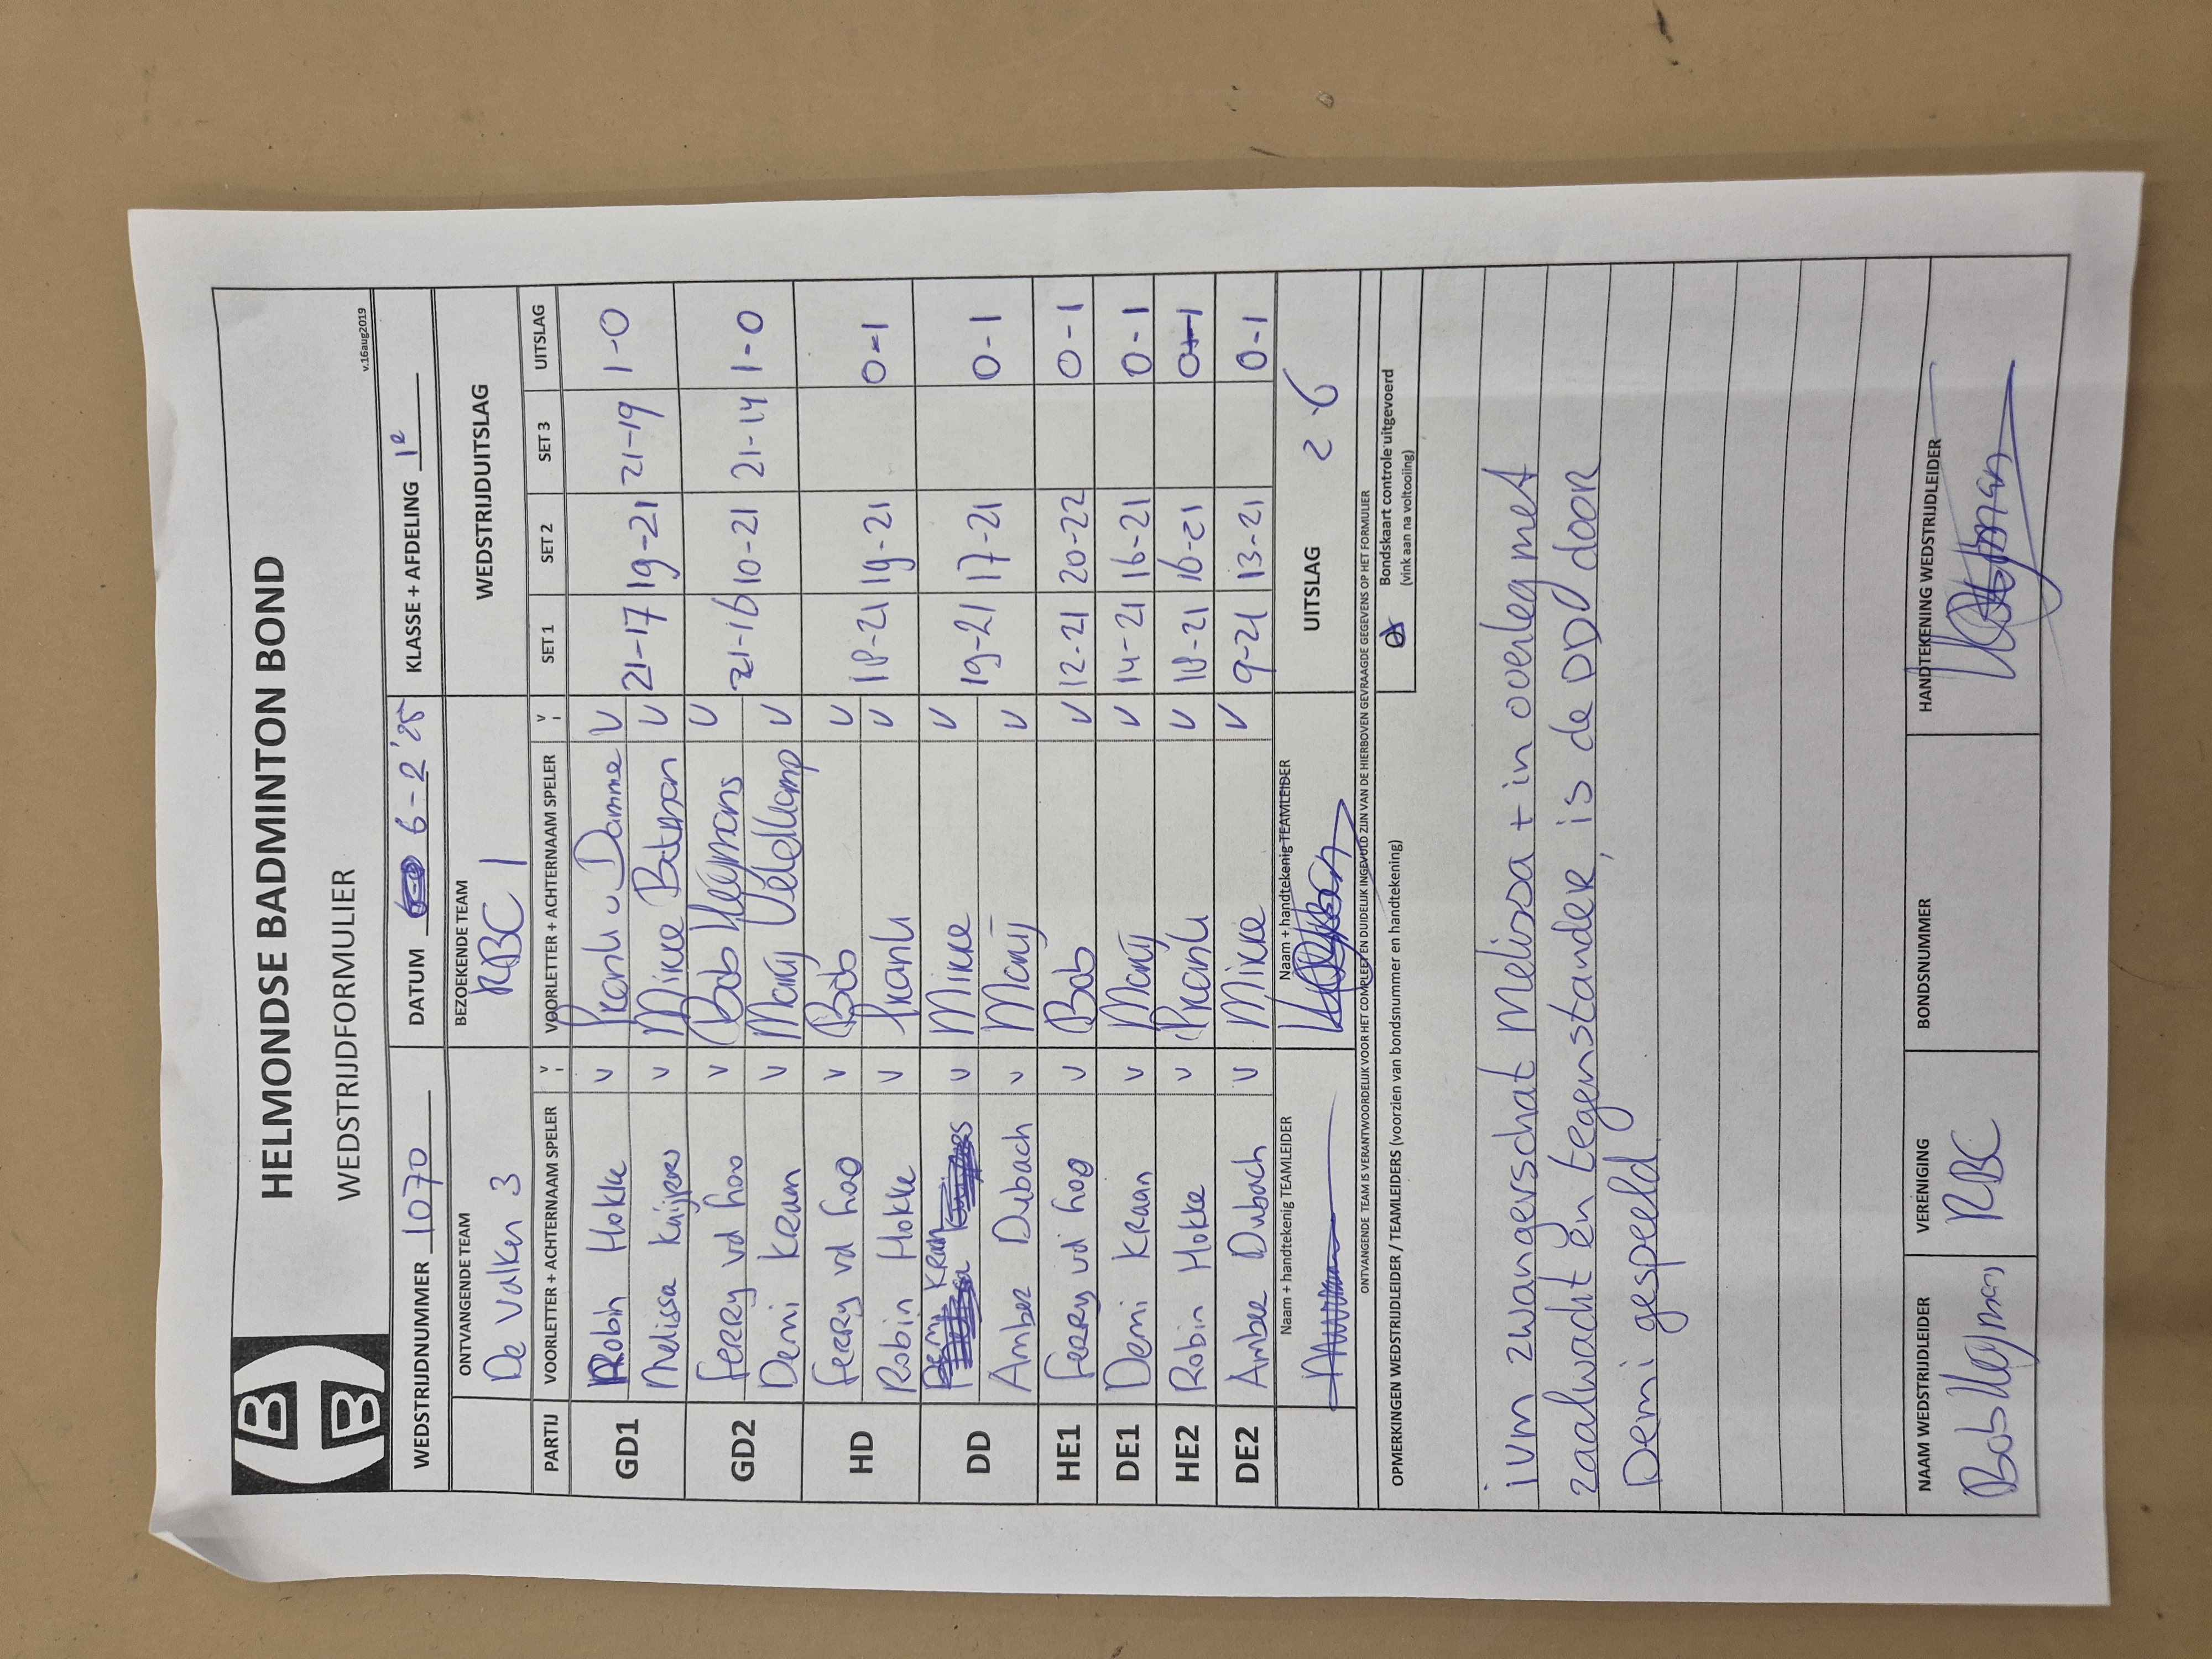 HELMONDSE BADMINTON BOND
WEDSTRIJDFORMULIER
v.16aug2019
WEDSTRIJDNUMMER 1070 DATUM 6-2'25 KLASSE + AFDELING 1e
ONTVANGENDE TEAM BEZOEKENDE TEAM WEDSTRIJDUITSLAG
De Valken 3 RBC 1
PARTIJ VOORLETTER + ACHTERNAAM SPELER V VOORLETTER + ACHTERNAAM SPELER V SET 1 SET 2 SET 3 UITSLAG
GD1 Robin Hokke V Frank v Damme V
Melissa Kuijpers V Mikke V 21-17 19-21 21-19 1-0
GD2 Ferry vd hoo V Bob Heymans V
Demi Kraan V Marij Veldkamp V 21-16 10-21 21-14 1-0
HD Ferry vd hoo V Bob V
Robin Hokke V Frank V 18-21 19-21 0-1
DD Demi Kraan V Mikke V
Amber Dubach V Marij V 19-21 17-21 0-1
HE1 Ferry vd hoo V Bob V 12-21 20-22 0-1
DE1 Demi Kraan V Marij V 14-21 16-21 0-1
HE2 Robin Hokke V Frank V 18-21 16-21 0-1
DE2 Amber Dubach V Mikke V 9-21 13-21 0-1
Naam + handtekenig TEAMLEIDER Naam + handtekenig TEAMLEIDER UITSLAG 2-6
ONTVANGENDE TEAM IS VERANTWOORDELIJK VOOR HET COMPLEET EN DUIDELIJK INGEVULD ZIJN VAN DE HIERBOVEN GEVRAAGDE GEGEVENS OP HET FORMULIER
OPMERKINGEN WEDSTRIJDLEIDER / TEAMLEIDERS (voorzien van bondsnummer en handtekening) Bondskaart controle uitgevoerd
(vink aan na voltooiing)
ivm zwangerschat Melissa + in overleg met
zaalwacht én tegenstander, is de DD door
Demi gespeeld
NAAM WEDSTRIJDLEIDER VERENIGING BONDSNUMMER HANDTEKENING WEDSTRIJDLEIDER
Bob Heymans RBC